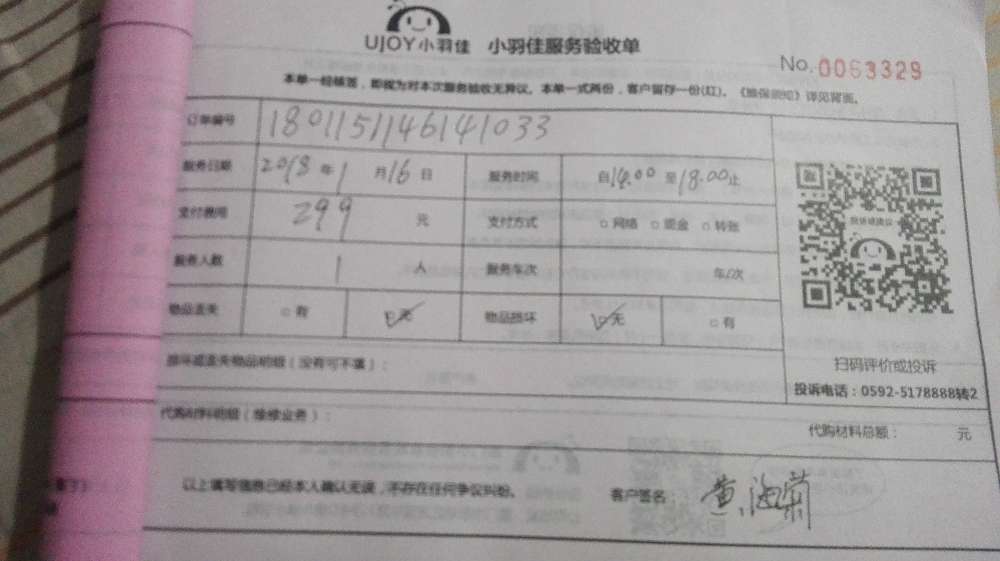 UJOY小羽佳 小羽佳服务验收单
No. 0063329
本单一经填签，即视为对本次服务验收无异议。本单一式两份，客户留存一份(红)。《维保须知》详见背面。
订单编号 1801151146141033
服务日期 2018 年 1 月 16 日 服务时间 自14.00 至18.00止
支付费用 299 元 支付方式 □网络 □现金 □转账
服务人数 1 人 服务车次 车/次
物品丢失 □有 □无 物品损坏 □无 □有
损坏或丢失物品明细（没有可不填）：
投诉或建议
扫码评价或投诉
投诉电话：0592-5178888转2
代购材料明细（维修业务）：
代购材料总额： 元
以上填写信息已经本人确认无误，不存在任何争议纠纷。 客户签名：黄海